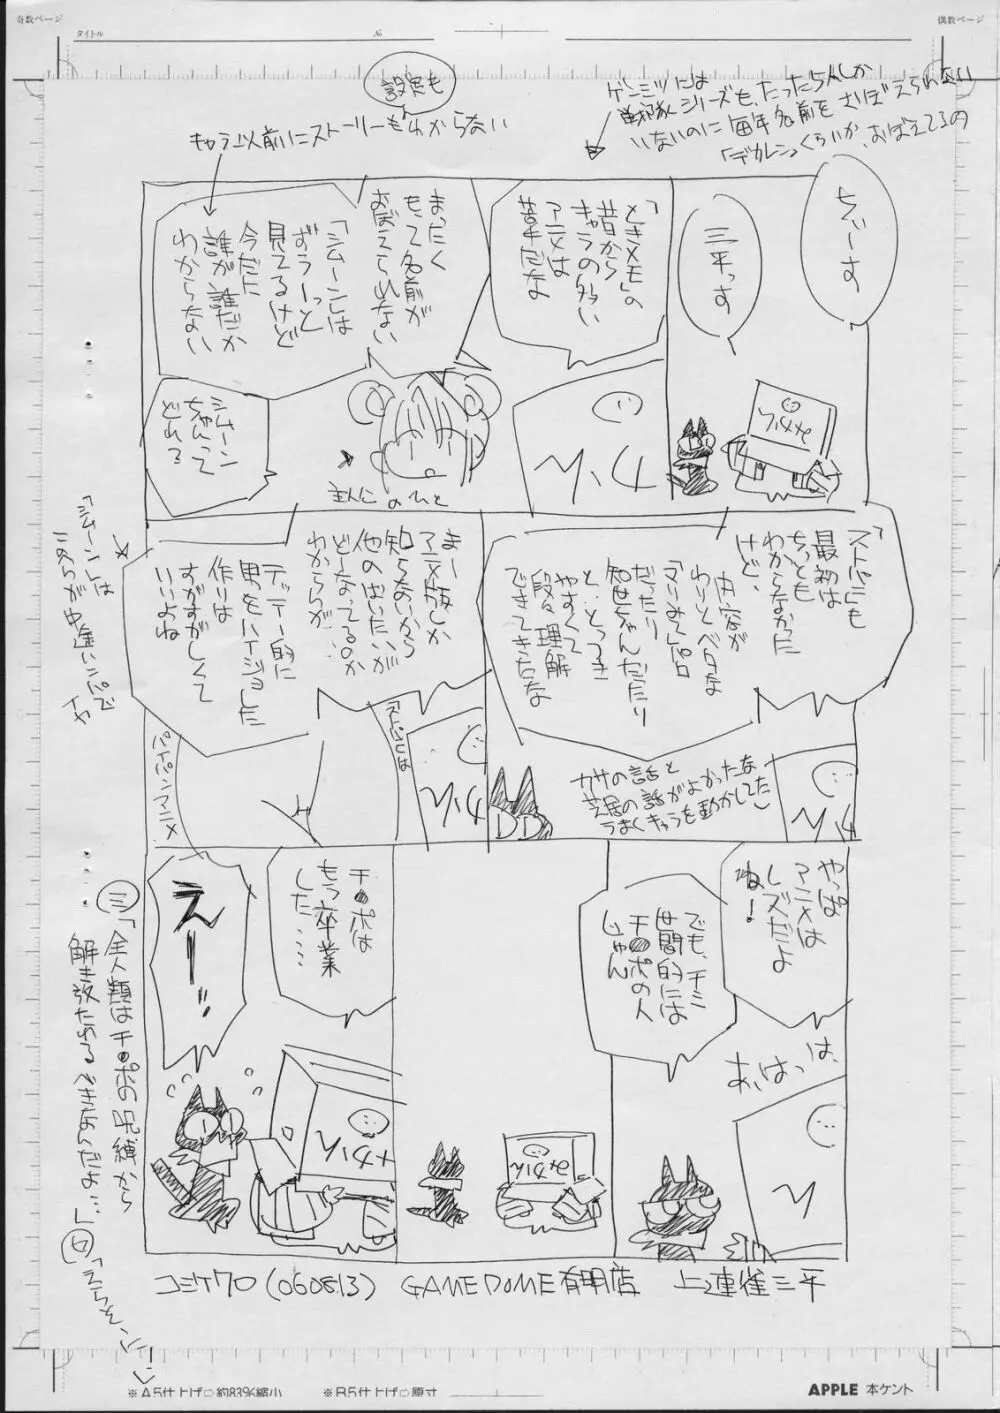 奇数ページ
偶数ページ
タイトル
№
設定も
キャラ以前にストーリーもわからない
ゲンミツには
戦隊シリーズも、たった5人しか
いないのに毎年名前をさぼえられない
「デカレン」くらいか、おぼえてるの
ちぃーす
三平っす
「ときメモ」の
昔から
キャラの多い
アニメは
苦手だな
まったく
もって名前が
おぼえられない
「シムーン」は
ずうーっと
見てるけど
今だに
誰が誰だか
わからない
シムーン
ちゃんって
どれ?
主人公のひと
「ストパニ」も
最初は
ちっとも
わからなかった
けど、
内容が
わりとベタな
「マリみて」パロ
だったり
知世ちゃんだったり
と、とっつき
やすくて
段々理解
できてきたな
カサの話と
芝居の話がよかったな
うまくキャラを動かしてた
まー
アニメ版しか
知らないから
他のはいたいが
どーなってるのか
わからんが…
テッテー的に
男をハイジョした
作りは
すがすがしくて
いいよね
「シムーン」は
このあが中途ハンパで
イヤ
「ストパニ」は
パイパンアニメ
やっぱ
アニメは
レズだよ
ね!
でも、チミ
世間的には
チ●ポの人
じゃん
あ、はっは、
チ●ポは
もう卒業
した……
えー!!
三「全人類はチ●ポの呪縛から
解き放たれるべきなんだよ…」
コミケ70(060813) GAME DOME有明店 上連雀三平
※A5仕上げ□約83%縮小 ※B5仕上げ□原寸
APPLE 本ケント